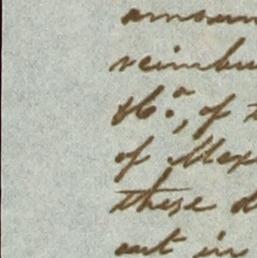 amoun
reimbu
of
of Mex
these d
out in